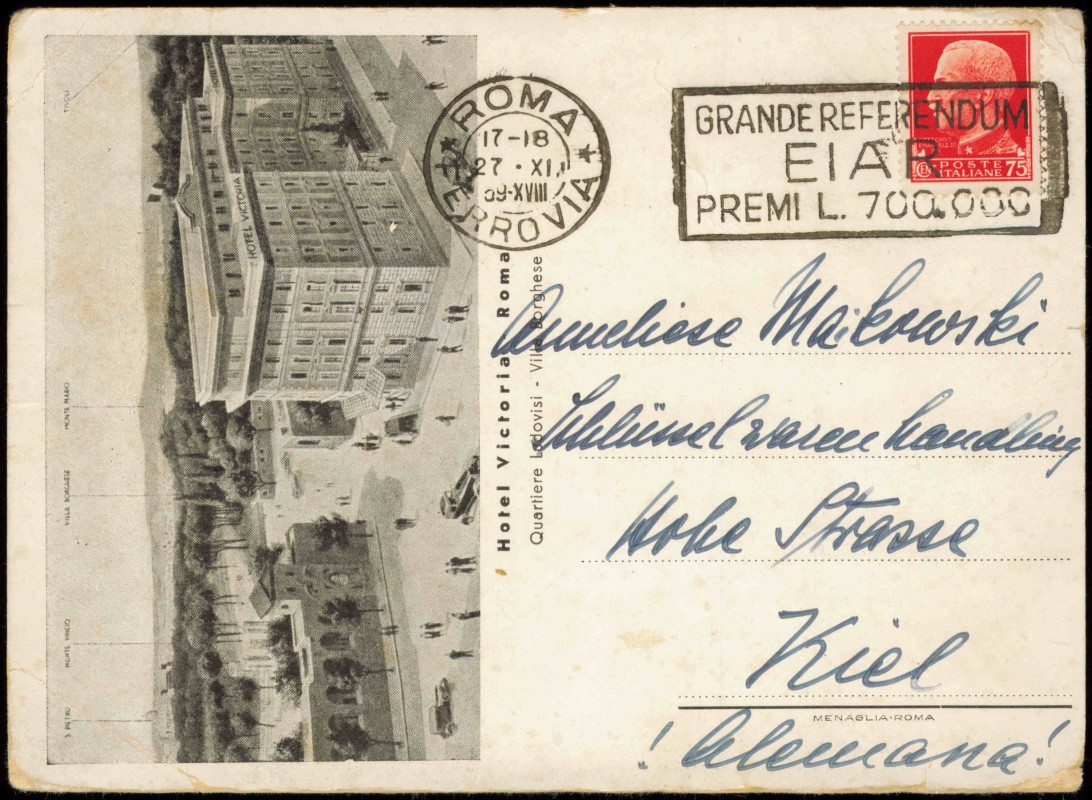 TIVOLI
MONTE MARIO
VILLA BORGHESE
MONTE PINCIO
S. PIETRO
HOTEL VICTORIA
Hotel Victoria Roma
Quartiere Ludovisi - Villa Borghese
ROMA
17-18
27 · XI
39-XVIII
FERROVIA
GRANDE REFERENDUM
EIAR
PREMI L. 700.000
POSTE
ITALIANE 75
Anneliese Maikowski
Schlüsselwarenhandling
Hohe Strasse
Kiel
MENAGLIA-ROMA
! Alemana !